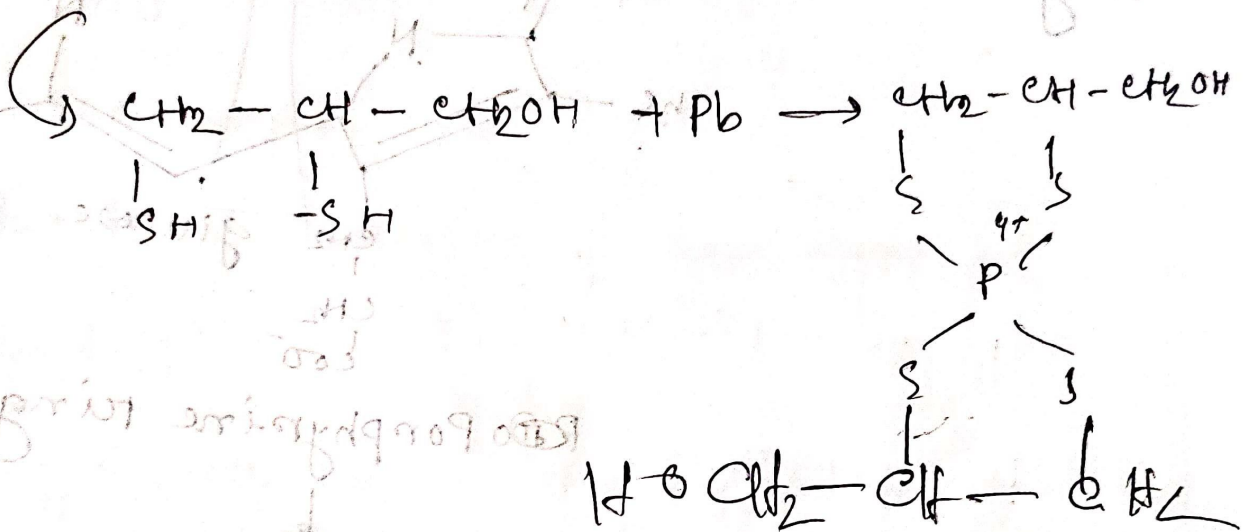 CH2 - CH - CH2OH + Pb → CH2 - CH - CH2OH
SH -SH S S
4+
P
S S
HO CH2 - CH - CH2